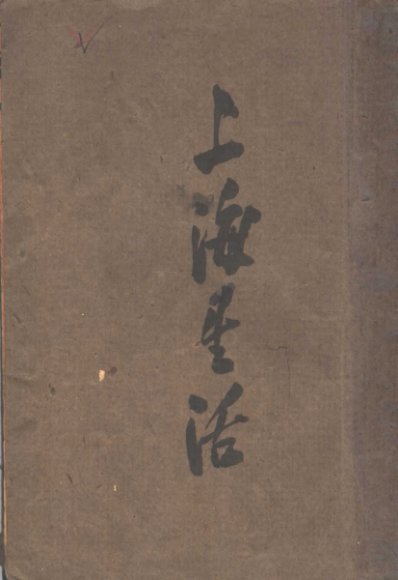 上海生活